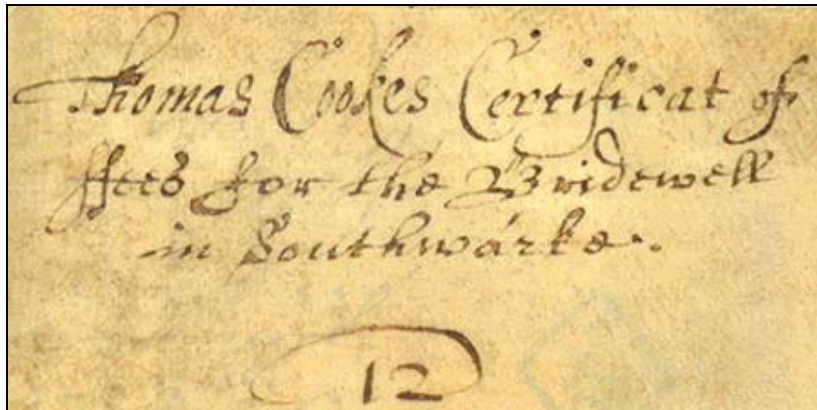 Thomas Cookes Certificat of
ffees for the Bridewell
in Southwarke.
12